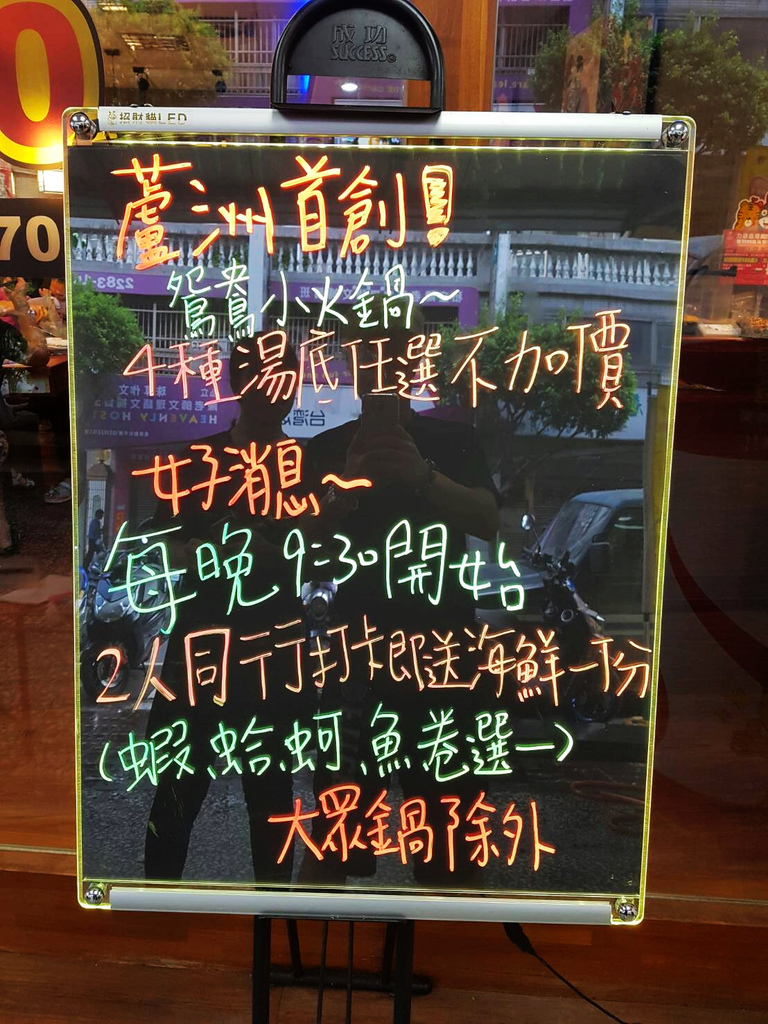 成功
SUCCESS
招財貓LED
蘆洲首創!
鴛鴦小火鍋~
4種湯底任選不加價
好消息~
每晚9:30開始
2人同行打卡即送海鮮一份
(蝦、蛤、蚵、魚卷選一)
大眾鍋除外
0
70
2283-
HEAVENLY HOST
台灣